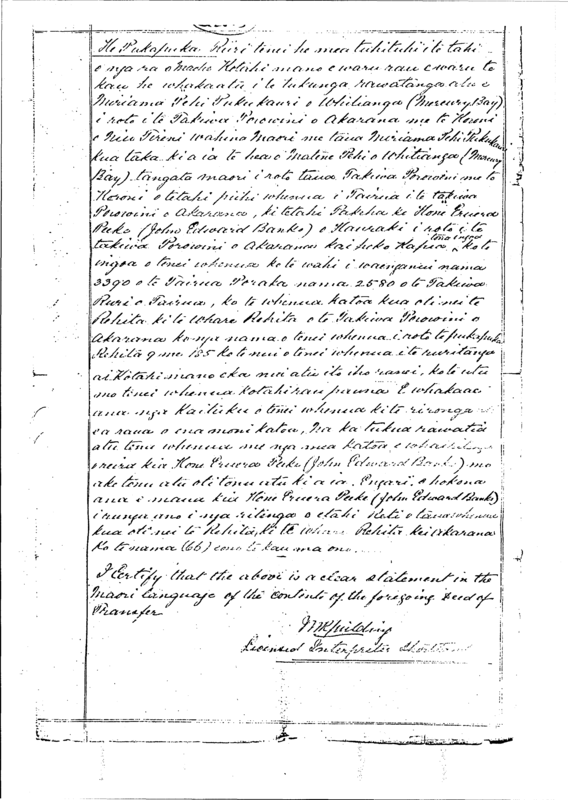 He Pukapuka Ruri tenei he mea tuhituhi i te tahi
o nga ra o Maehe Kotahi mano e waru rau e waru te
kau he whakaatu i te tukunga rawatanga atu e
Miriama Pehi Pukukauri o Whitianga (Mercury Bay)
i roto i te Takiwa Porowini o Akarana me te Koroni
o Niu Tireni wahine Maori me taua Miriama Pehi Pukukauri
kua taka ki a ia te hea o Matene Pehi o Whitianga (Mercury
Bay) tangata maori i roto taua Takiwa Porowini me te
Koroni o tetahi pihi whenua i Tairua i te takiwa
Porowini o Akarana, ki tetahi Pakeha ko Hone Eruera
Peke (John Edward Banks) o Hauraki i roto i te
takiwa Porowini o Akarana kai hoko Kapia tona ingoa ko te
ingoa o tenei whenua ko te wahi i waenganui nama
3390 o te Tairua Poraka nama 2580 o te Takiwa
Ruri o Tairua, ko te whenua katoa kua oti nei te
Rehita ki te Whare Rehita o te Takiwa Porowini o
Akarana ko nga nama o tenei whenua i roto te pukapuka
Rehita 9 me 185 ko te nui o tenei whenua i te ruritanga
ai Kotahi mano eka nui atu iti iho ranei, ko te utu
mo tenei whenua kotahi rau pauna E whakaae
ana nga Kaituku o tenei whenua ki te rironga
a raua o ena moni katoa, Na ka tukua rawatia
atu tenei whenua me nga mea katoa e
ereira kia Hone Eruera Peke (John Edward Banks) mo
ake tonu atu oti tonu atu ki a ia. Engari e hokona
ana i mana kia Hone Eruera Peke (John Edward Banks)
i runga ano i nga ritenga o etahi Reti o taua whenua
kua oti nei te Rehita, ki te whare Rehita kei Akarana
Ko te nama (66) e ono te kau ma ono
I Certify that the above is a clear statement in the
Maori language of the contents of the foregoing Deed of
Transfer
Licensed Interpreter